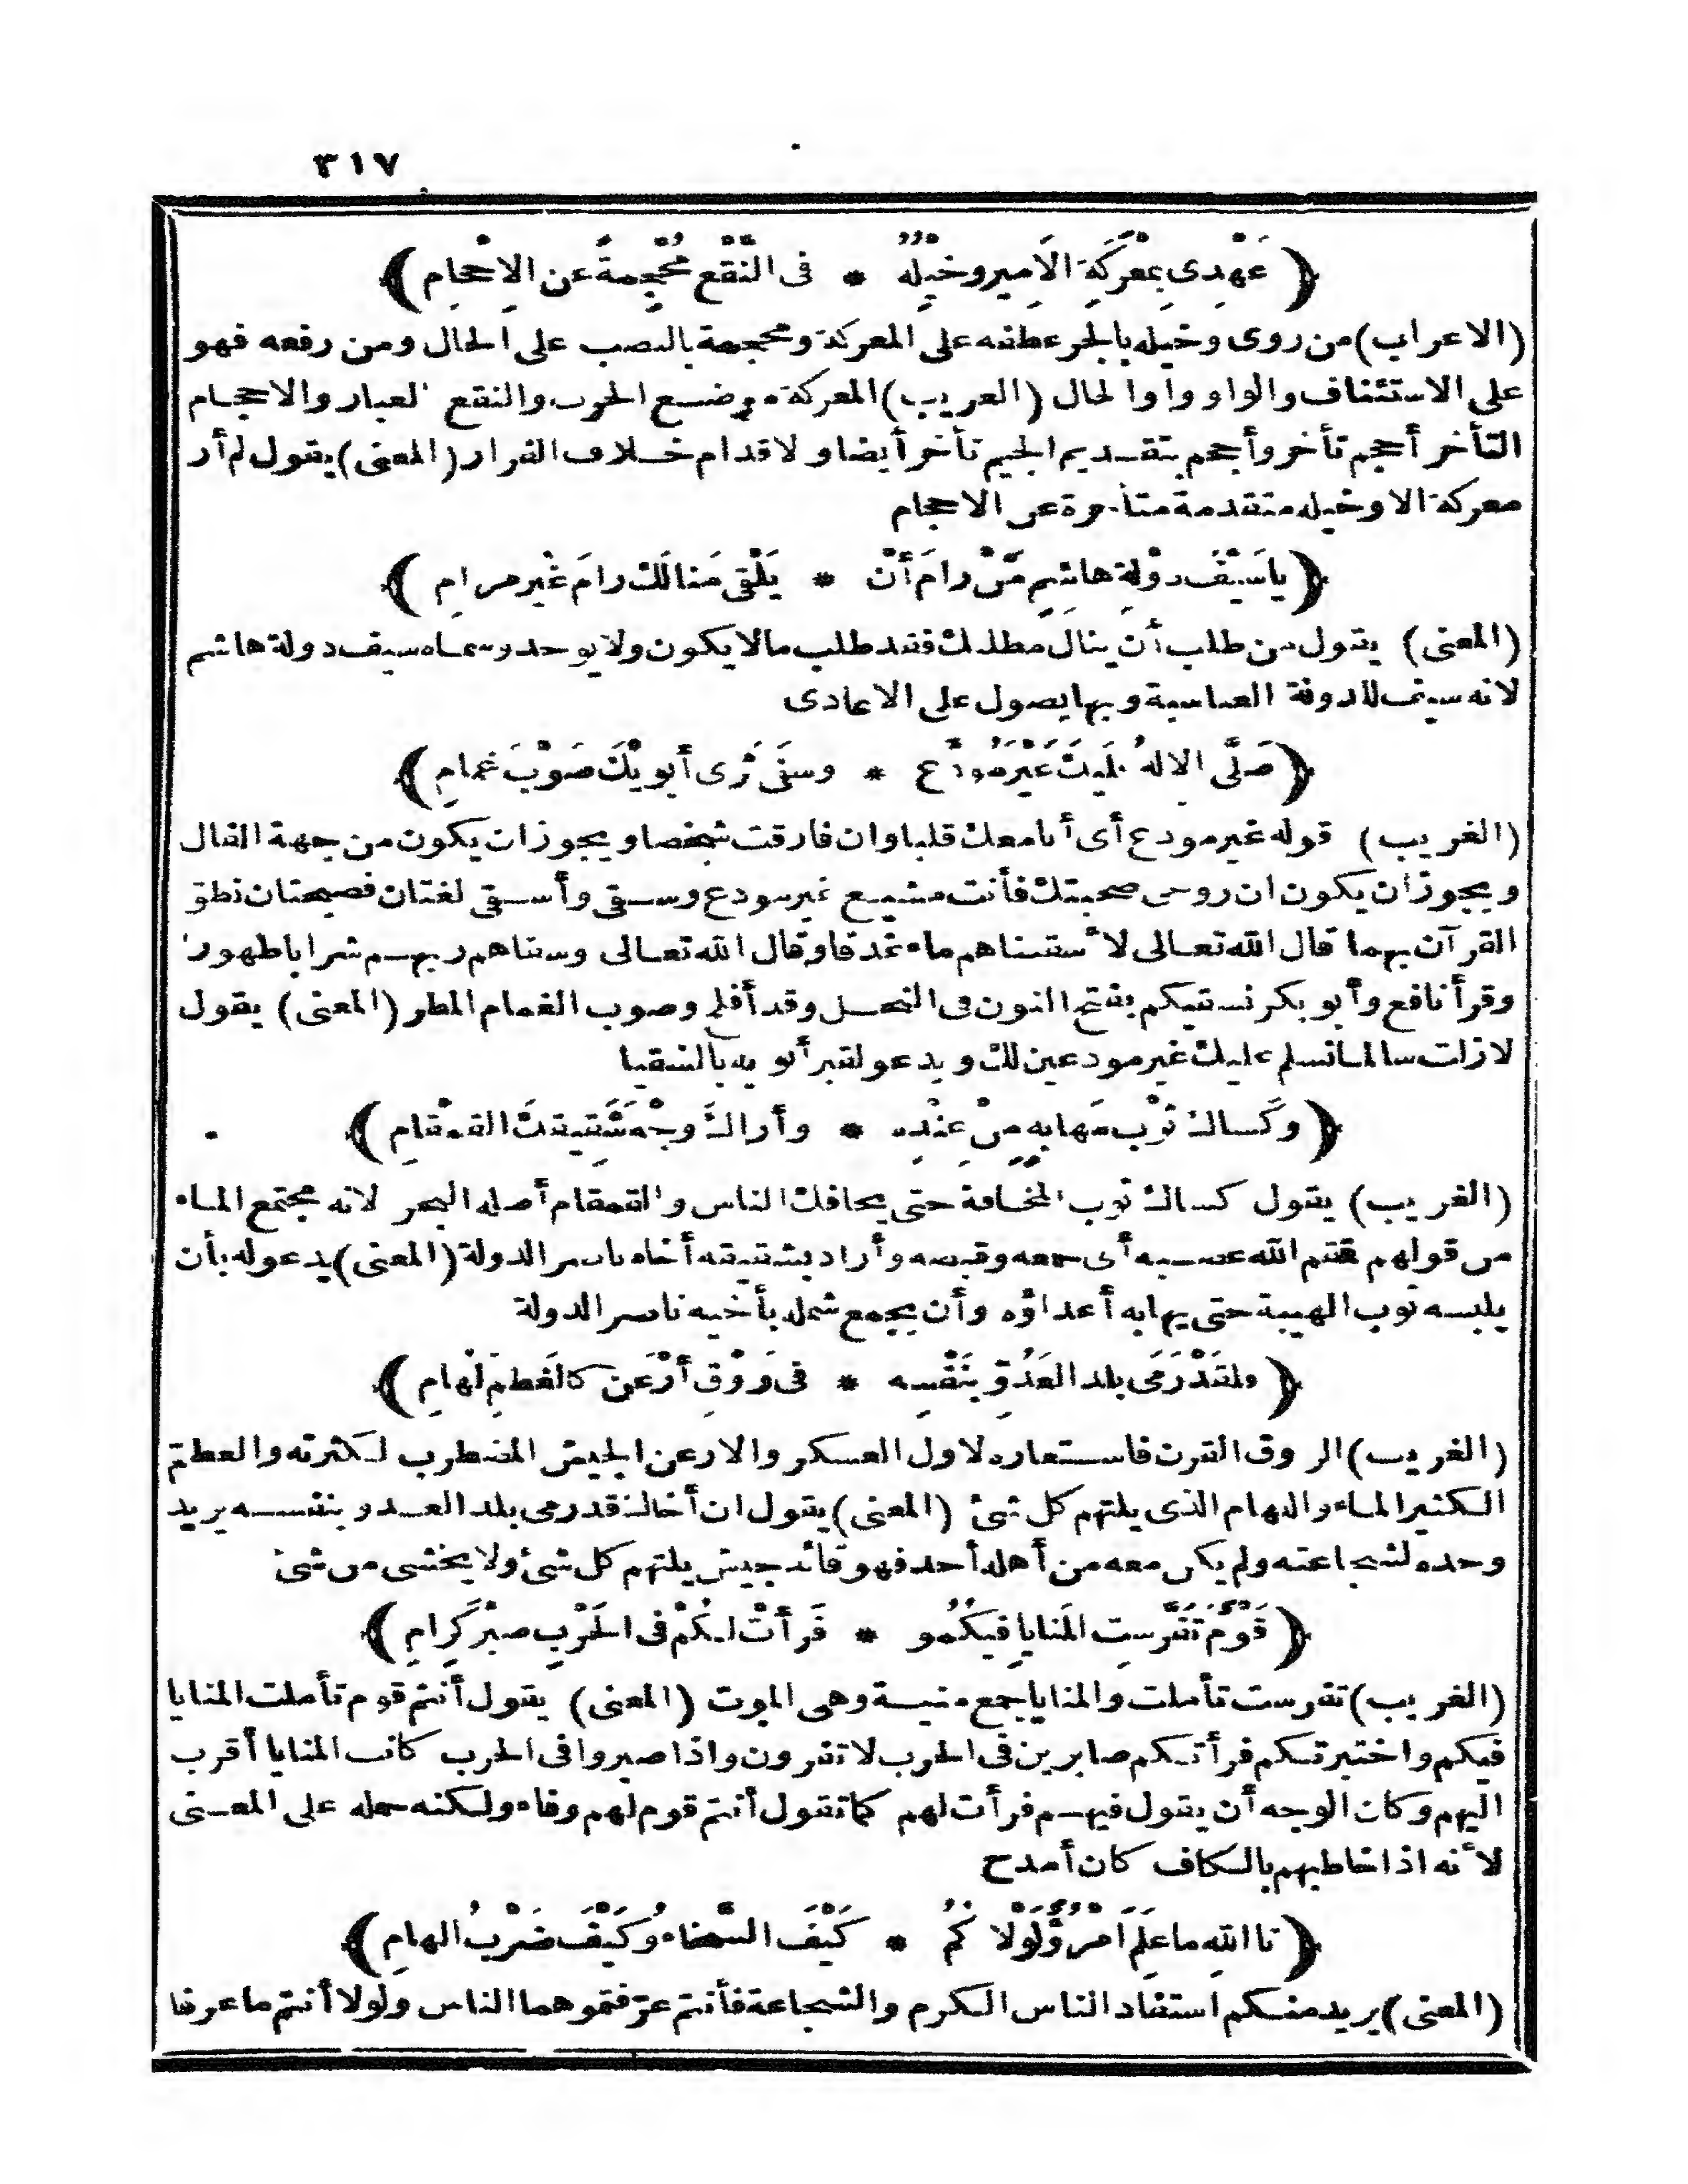 ٣١٧
﴿عَهْدِى بِمَعْرَكَةِ الاَمِيرِ وخَيْلُهُ * فى النَّقْعِ مُحْجِمَةً عن الاِحْجامِ﴾
(الاعراب) من روى وخيله بالجر عطفه على المعركة ومحجمة بالنصب على الحال ومن رفعه فهو
على الاستئناف والواو واو الحال (الغريب) المعركة موضع الحرب والنقع الغبار والاحجام
التأخر أحجم تأخر وأجحم بتقديم الجيم تأخر أيضا ولاقدام خلاف الفرار (المعنى) يقول لم أر
معركة الا وخيله متقدمة متأخرة عن الاحجام
﴿ياسَيْفَ دولةِ هاشِمٍ مَنْ رامَ أنْ * يَلْقى مَنالَكَ رامَ غَيْرَ مرامِ﴾
(المعنى) يقول من طلب أن ينال مطلبك فقد طلب مالا يكون ولا يوجد وسماه سيف دولة هاشم
لانه سيف للدولة العباسية وبها يصول على الاعادى
﴿صَلَّى الالهُ عليكَ غَيْرَ مُوَدَّعٍ * وسقَى ثَرى أبويْكَ صَوْبَ غمامِ﴾
(الغريب) قوله غير مودع أى أنا معك قلبا وان فارقت شخصا ويجوز ان يكون من جهة الفال
ويجوز ان يكون ان روحى صحبتك فأنت مشيع غير مودع وسقى وأسقى لغتان فصيحتان نطق
القرآن بهما قال الله تعالى لأسقيناهم ماء غدقا وقال الله تعالى وسقاهم ربهم شرابا طهورا
وقرأ نافع وأبو بكر نسقيكم بفتح النون فى النحل وقد أفلح وصوب الغمام المطر (المعنى) يقول
لازلت سالما نسلم عليك غير مودعين لك ويدعو لقبر أبويه بالسقيا
﴿وكَساكَ ثوْبَ مَهابةٍ مِنْ عِنْدِه * وأراكَ وجْهَ شَقِيقِكَ القَمْقامِ﴾
(الغريب) يقول كساك ثوب المخافة حتى يخافك الناس والقمقام أصله البحر لانه مجتمع الماء
من قولهم قمقم الله عصبه أى جمعه وقبضه وأراد بشقيقه أخاه ناصر الدولة (المعنى) يدعو له بأن
يلبسه ثوب الهيبة حتى يهابه أعداؤه وأن يجمع شمله بأخيه ناصر الدولة
﴿ولقَدْ رَمَى بلد العَدُوِّ بنَفْسِه * فى رَوْقِ أرْعَنَ كالغَطَمِّ لُهامِ﴾
(الغريب) الروق القرن فاستعاره لاول العسكر والارعن الجيش المضطرب لكثرته والغطم
الكثير الماء واللهام الذى يلتهم كل شئ (المعنى) يقول ان أخاك قد رمى بلد العدو بنفسه يريد
وحده لشجاعته ولم يكن معه من أهله أحد فهو قائد جيش يلتهم كل شئ ولا يخشى من شئ
﴿قَوْمٌ تَفَرَّستِ المَنايا فيكُمو * فَرأتْ لكُمْ فى الحَرْبِ صبْرَ كِرامِ﴾
(الغريب) تفرست تأملت والمنايا جمع منية وهى الموت (المعنى) يقول أنتم قوم تأملت المنايا
فيكم واختبرتكم فرأتكم صابرين فى الحرب لا تفرون واذا صبروا فى الحرب كانت المنايا أقرب
اليهم وكان الوجه أن يقول فيهم فرأت لهم كما تقول أنتم قوم لهم وفاء ولكنه حمله على المعنى
لأنه اذا خاطبهم بالكاف كان أمدح
﴿تاالله ما عَلِمَ امْرُؤٌ لَوْلاكُمُ * كَيْفَ السَّخاءُ وكَيْفَ ضَرْبُ الهامِ﴾
(المعنى) يريد منكم استفاد الناس الكرم والشجاعة فأنتم عرّفتموهما الناس ولولا أنتم ماعرفا